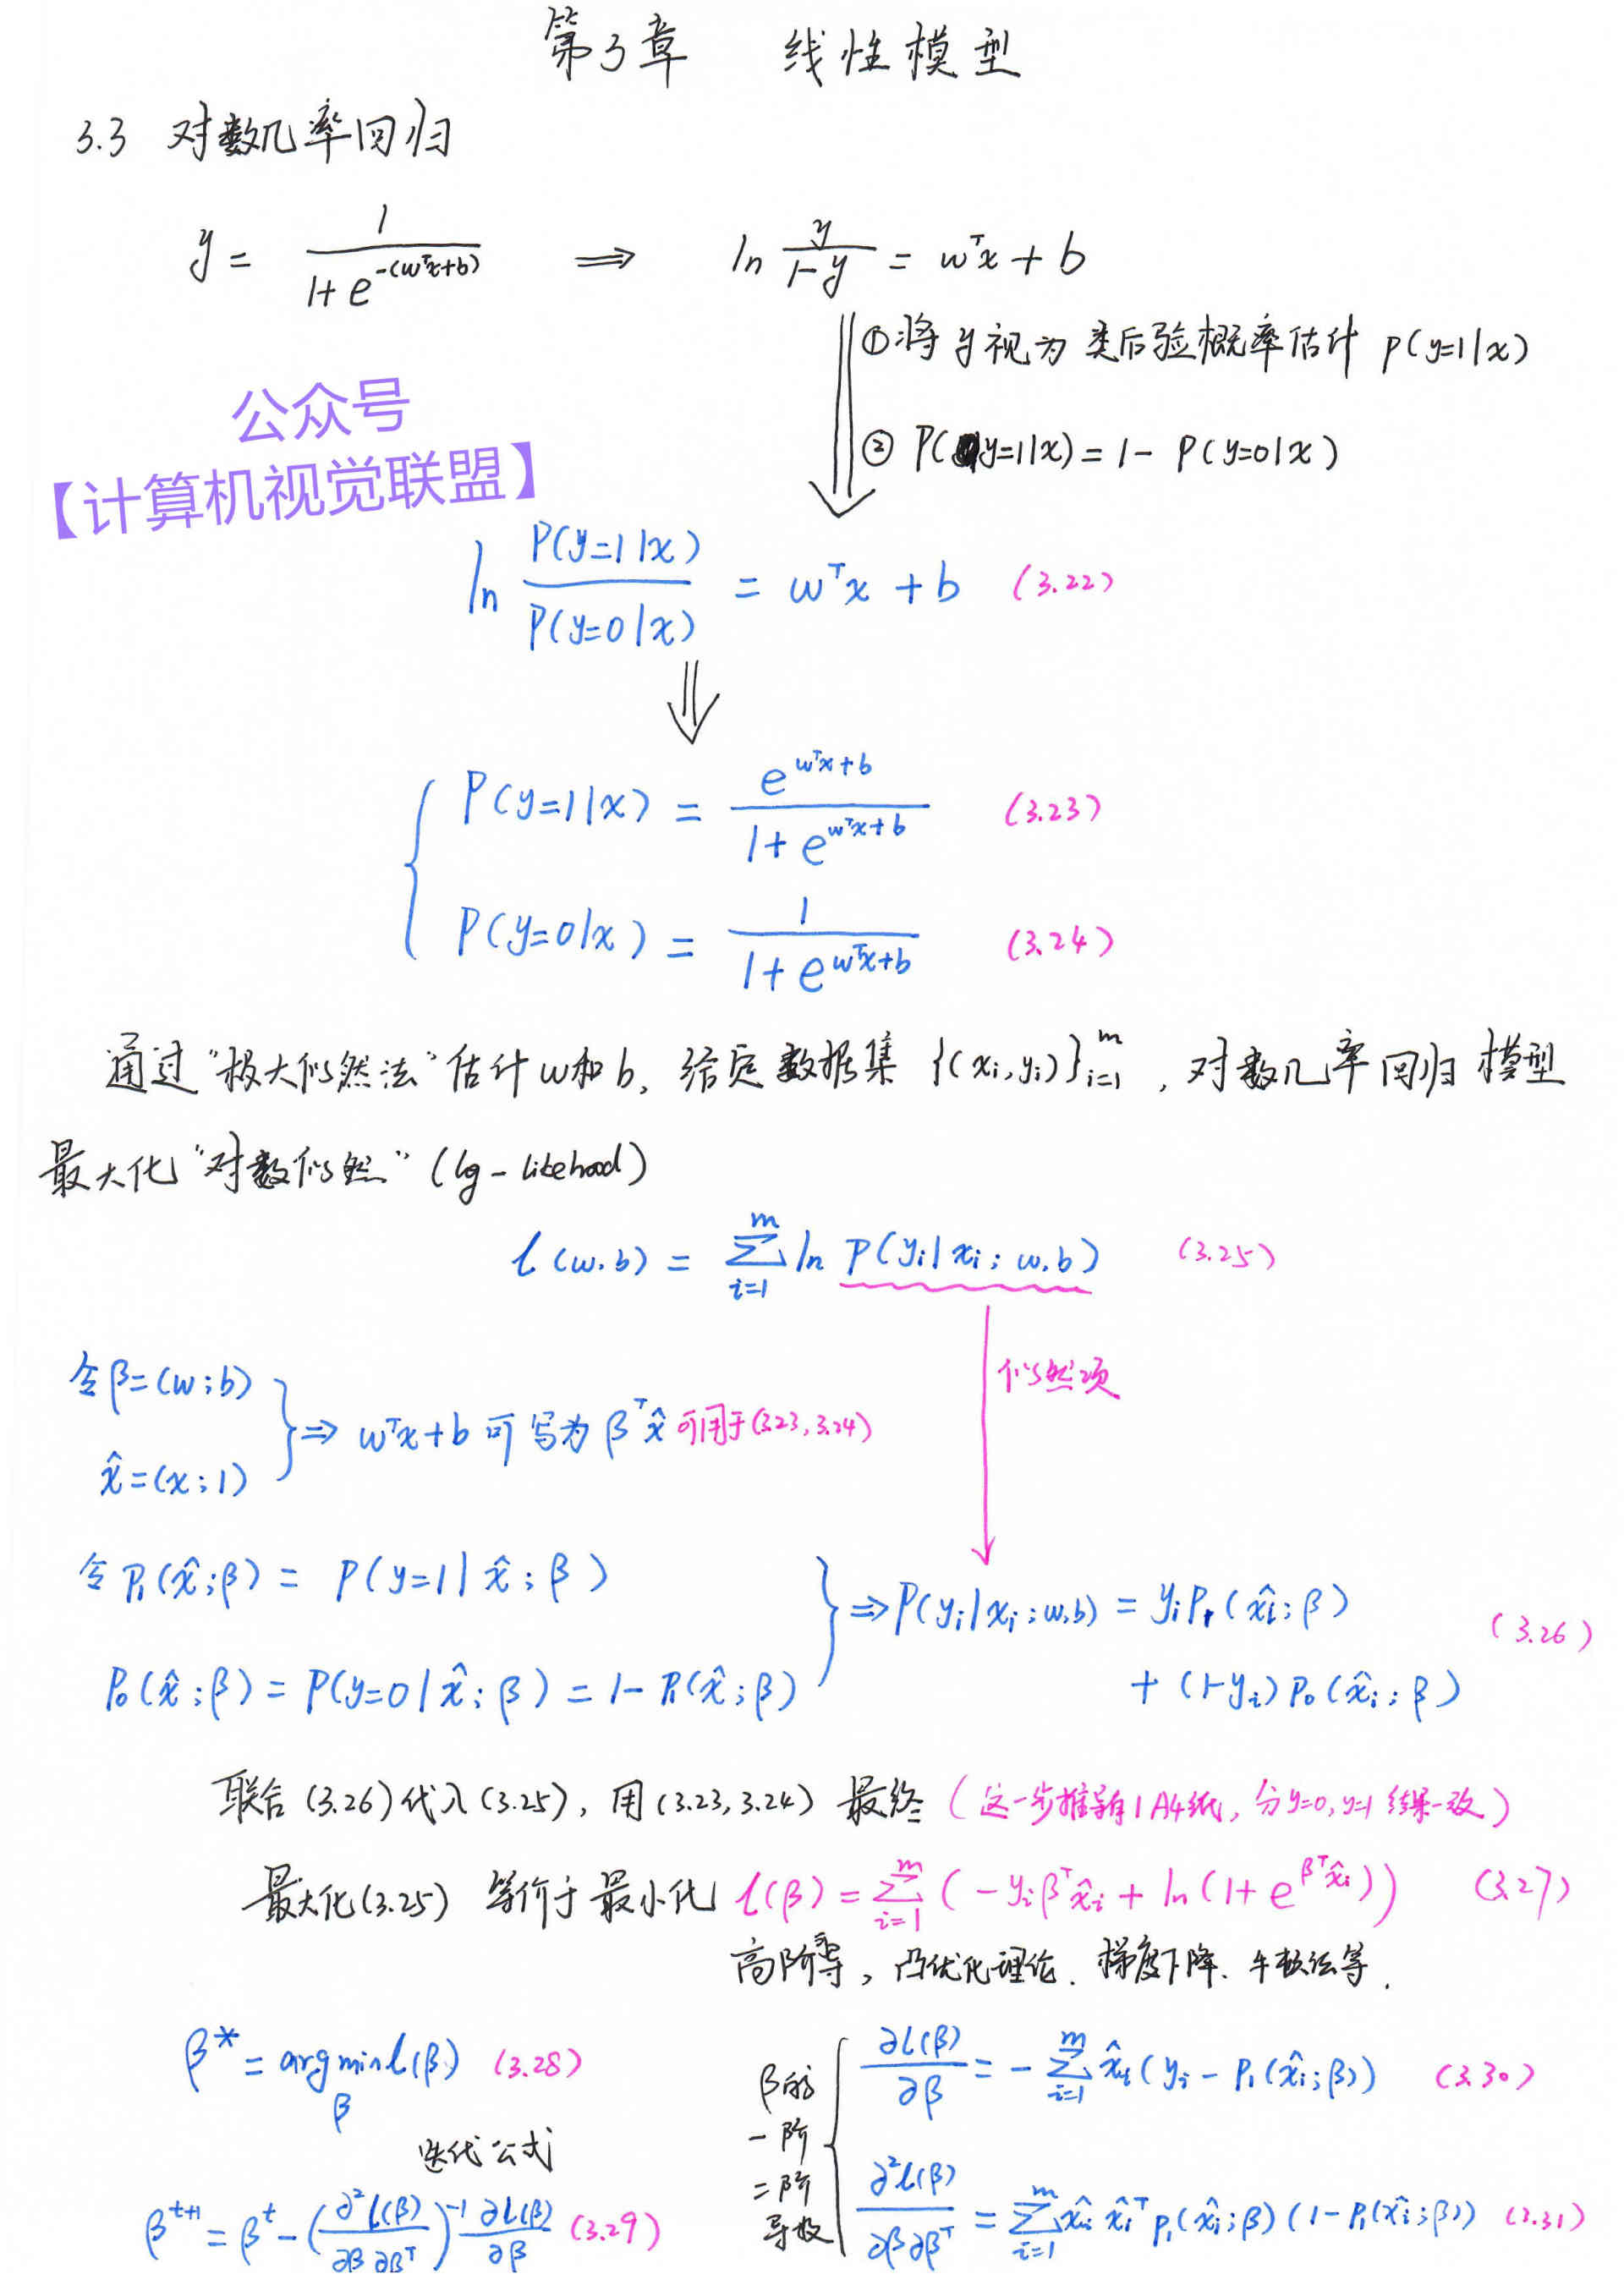 第3章 线性模型
3.3 对数几率回归
y = 1 / (1 + e^{-(wᵀx+b)}) ⟹ ln y/(1-y) = wᵀx + b
①将y视为类后验概率估计 p(y=1|x)
公众号
② P(y=1|x) = 1 - P(y=0|x)
【计算机视觉联盟】
ln P(y=1|x)/P(y=0|x) = wᵀx + b (3.22)
⇓
P(y=1|x) = e^{wᵀx+b} / (1 + e^{wᵀx+b}) (3.23)
P(y=0|x) = 1 / (1 + e^{wᵀx+b}) (3.24)
通过“极大似然法”估计w和b, 给定数据集 {(xᵢ,yᵢ)}ᵢ₌₁ᵐ , 对数几率回归模型
最大化“对数似然”(lg-likehood)
l(w.b) = Σᵢ₌₁ᵐ ln P(yᵢ|xᵢ; w.b) (3.25)
似然项
令β=(w;b)
x̂=(x;1)
} ⇒ wᵀx+b 可写为 βᵀx̂ 可用于(3.23,3.24)
令 P₁(x̂;β) = P(y=1|x̂;β)
P₀(x̂;β) = P(y=0|x̂;β) = 1 - P₁(x̂;β)
} ⇒ P(yᵢ|xᵢ;w,b) = yᵢP₁(x̂ᵢ;β)
+ (1-yᵢ)P₀(x̂ᵢ;β) (3.26)
联合(3.26)代入(3.25), 用(3.23,3.24) 最终 (这一步推导有1A4纸, 分y=0,y=1 结果一致)
最大化(3.25) 等价于最小化 l(β) = Σᵢ₌₁ᵐ (-yᵢβᵀx̂ᵢ + ln(1+e^{βᵀx̂ᵢ})) (3.27)
高阶导, 凸优化理论. 梯度下降. 牛顿法等.
β* = arg min_β l(β) (3.28)
迭代公式
β^{t+1} = β^t - (∂²l(β)/∂β∂βᵀ)⁻¹ ∂l(β)/∂β (3.29)
β的
一阶
二阶
导数
∂l(β)/∂β = -Σᵢ₌₁ᵐ x̂ᵢ(yᵢ - P₁(x̂ᵢ;β)) (3.30)
∂²l(β)/∂β∂βᵀ = Σᵢ₌₁ᵐ x̂ᵢx̂ᵢᵀ p₁(x̂ᵢ;β)(1-P₁(x̂ᵢ;β)) (3.31)